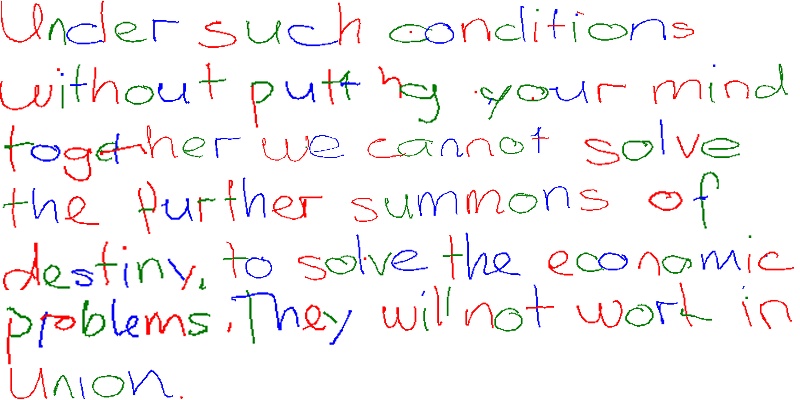 Under such conditions
without putting your mind
together we cannot solve
the further summons of
destiny, to solve the economic
problems. They will not work in
Union.